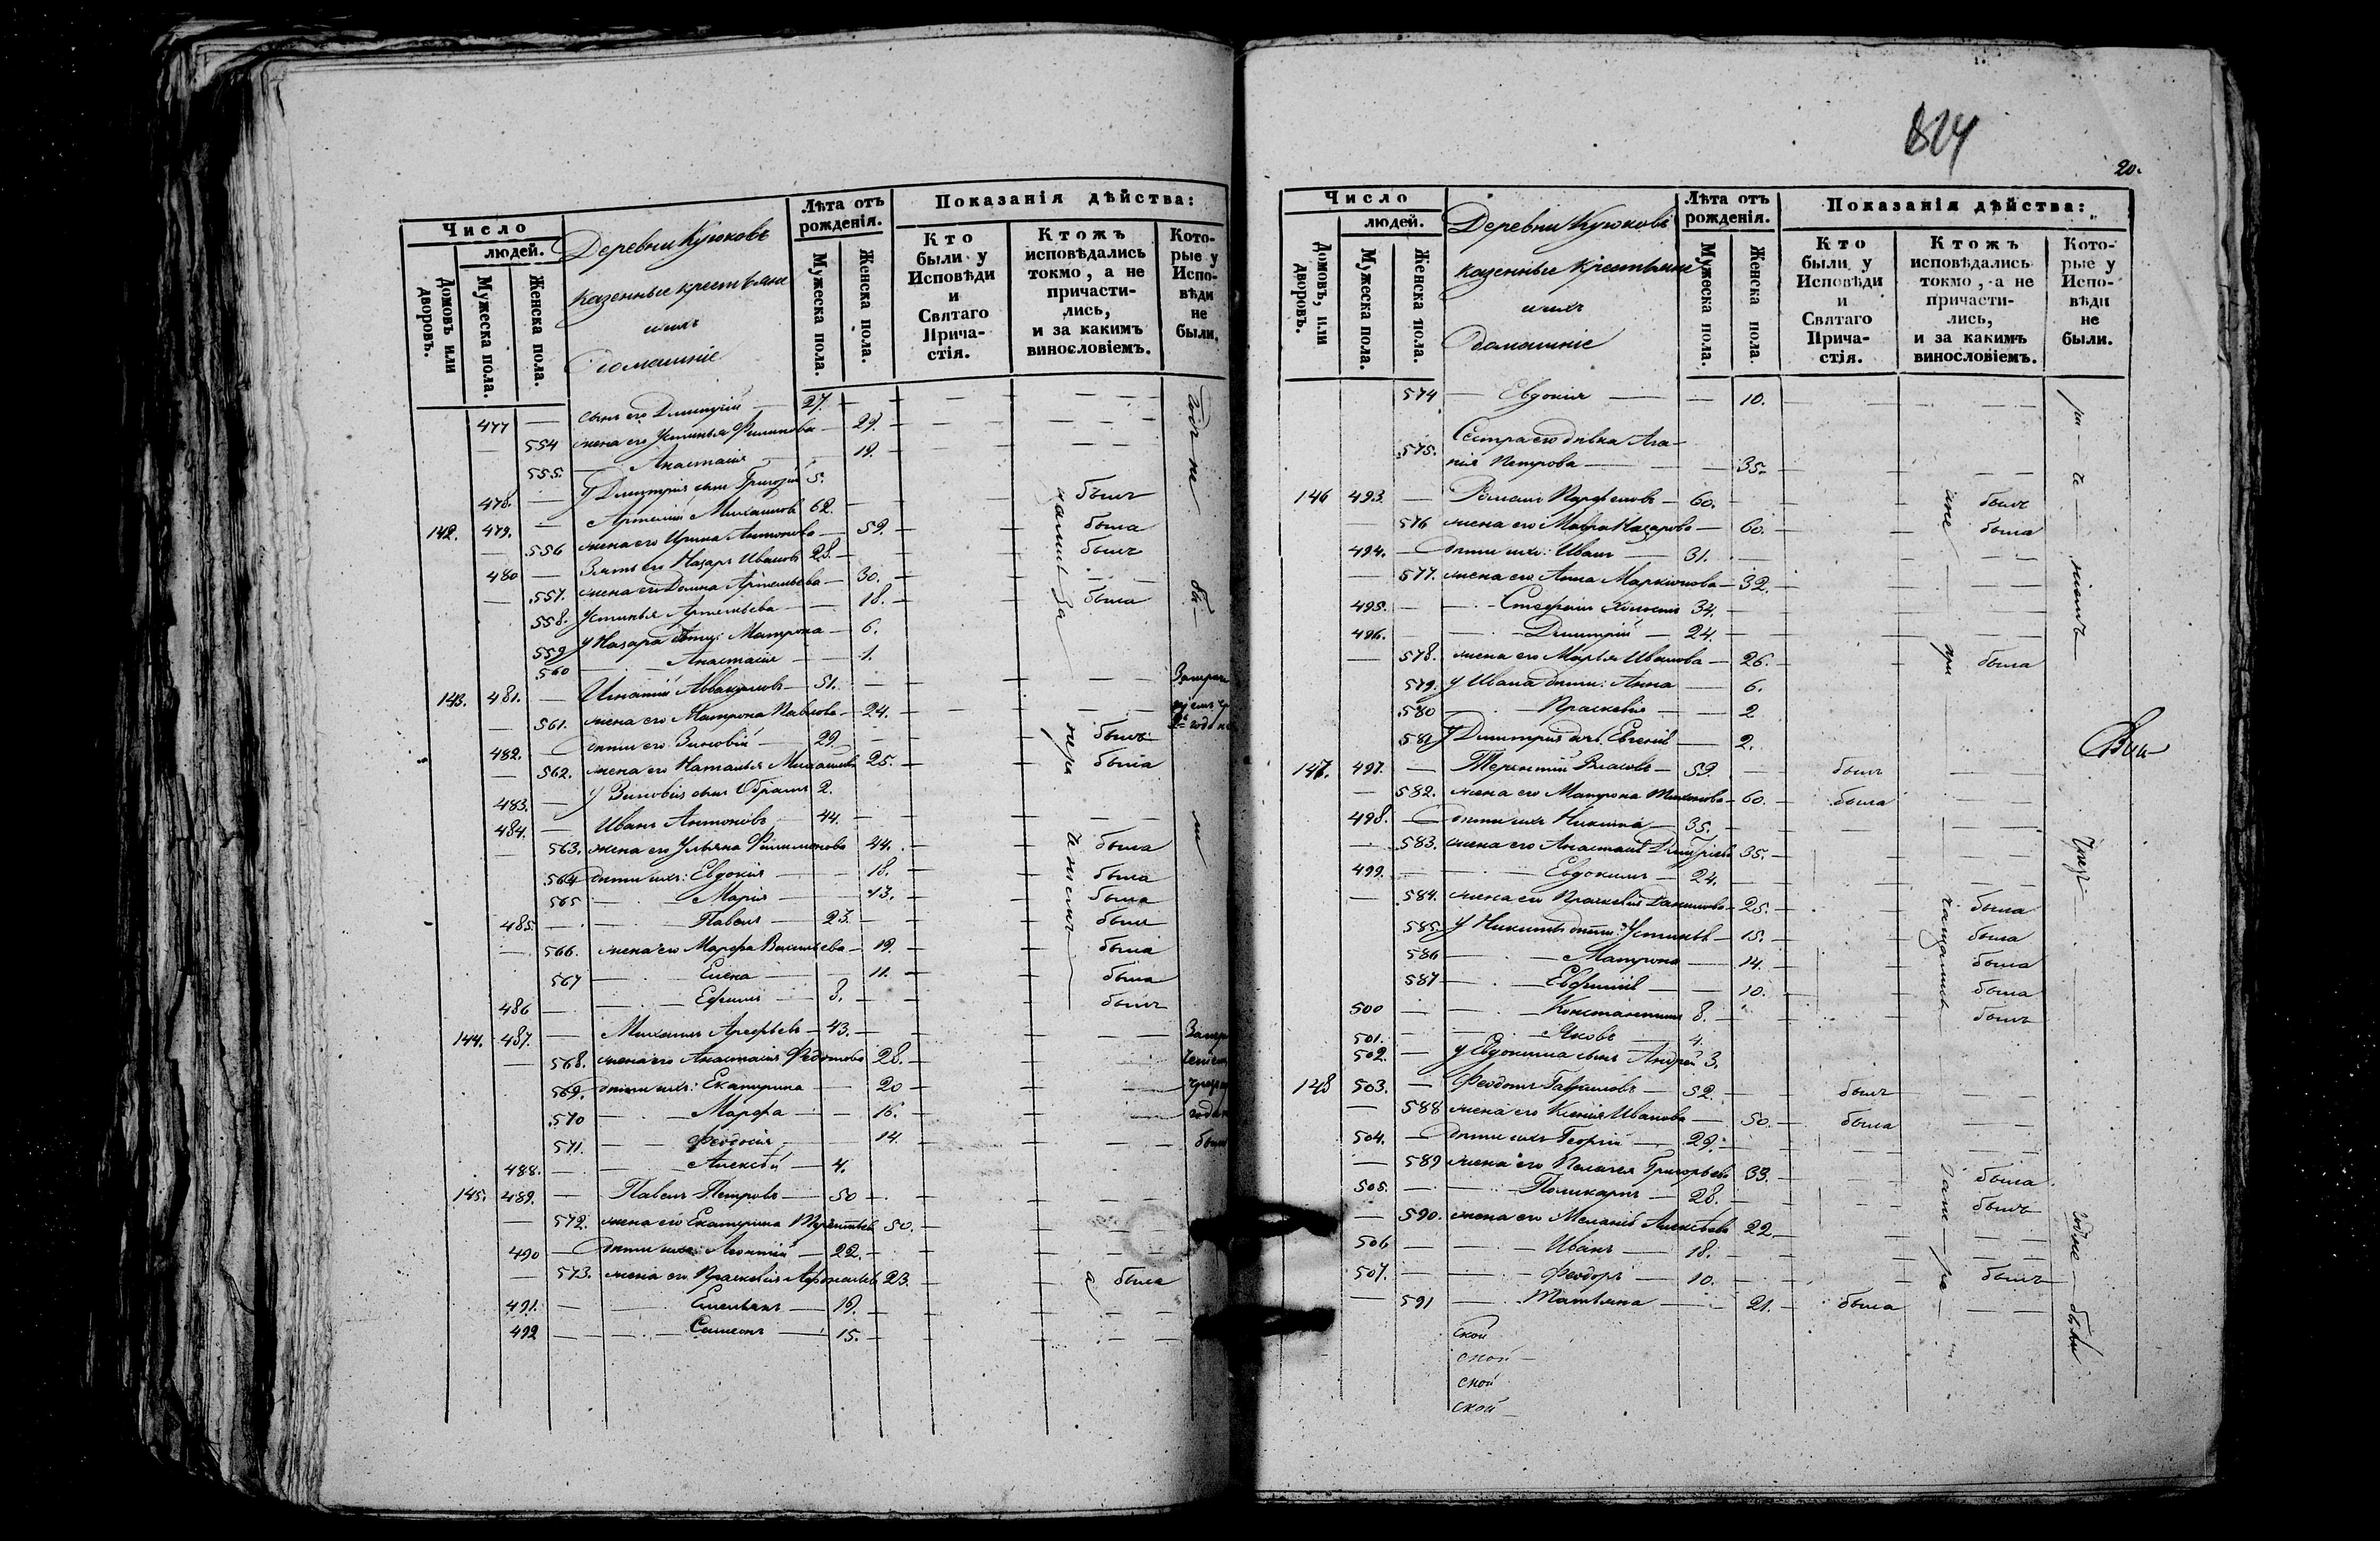 Число
людей.
Домовъ или дворовъ.
Мужеска пола.
Женска пола.
Деревни Куюковъ
казенные крестьяне
и ихъ
домашніе
Лѣта отъ рожденія.
Мужеска пола.
Женска пола.
Показанія дѣйства:
Кто были у Исповѣди и Святаго Прича- стія.
Ктожъ исповѣдались токмо, а не причасти- лись, и за какимъ винословіемъ.
Кото- рые у Испо- вѣди не были.
477 — сынъ его Димитрій — 27.
554 жена его Устинья Филипова — 29.
555. — Анастасія — 19.
478. — У Димитрія сынъ Григорій 5.
142. 479. — Артемій Михаиловъ 62. — былъ
556 жена его Ирина Антонова — 59. — была
480 — Зять его Назаръ Ивановъ 28. — былъ
557. жена его Домна Артемьева — 30.
558. Устинья Артемьева — 18. — была
559 У Назара дѣти: Матрона — 6.
560 — Анастасія — 1.
143. 481. — Игнатій Аввакумовъ — 51.
561. жена его Матрона Павлова — 24.
482. — дѣти его Зиновій — 29. — былъ
562. жена его Наталья Михаилова 25. — была
483. — У Зиновія сынъ 2.
484. — Иванъ Антоновъ — 44.
563. жена его Ульяна Филимонова 44. — была
564 дѣти ихъ: Евдокія — 18. — была
565 — Марія — 13. — была
485. — Павелъ — 23. — былъ
566. жена его Марфа Васильева — 19. — была
567 — Елена — 11. — была
486 — Ефимъ — 8. — былъ
144. 487. — Михаилъ Арефьевъ — 43.
568. жена его Анастасія Федотова 28.
569. дѣти ихъ: Екатерина — 20
570 — Марфа — 16.
571. — Феодосія — 14.
488. — Алексѣй — 4.
145. 489. — Павелъ Петровъ — 50
572. жена его Екатерина Терентьева 50.
490 — дѣти ихъ: Леонтій — 22.
573. жена его Праскевія Афонасьева 23. — была
491. — Емельянъ — 19.
492 — Симеонъ — 15.
814
20.
Число
людей.
Домовъ, или дворовъ.
Мужеска пола.
Женска пола.
Деревни Куюковъ
казенные крестьяне
и ихъ
домашніе
Лѣта отъ рожденія.
Мужеска пола.
Женска пола.
Показанія дѣйства:
Кто были у Исповѣди и Святаго Прича- стія.
Ктожъ исповѣдались токмо, а не причасти- лись, и за какимъ винословіемъ.
Кото- рые у Испо- вѣди не были.
574 — Евдокія — 10.
Сестра его дѣвка Ага-
575. пія Петрова — 35.
146 493. — Романъ — 60. — былъ
576 жена его Мавра Назарова — 60. — была
494. — дѣти ихъ: Иванъ — 31.
577. жена его Анна — 32.
495. — Стефанъ 34.
496. — Димитрій — 24.
578. жена его Марья Иванова — 26. — была
579. У Ивана дѣти: Анна — 6.
580 — Праскевія — 2
581 У Димитрія дочь Евгенія — 2.
147. 497. — Терентій Власовъ — 59. — былъ
582. жена его Матрона — 60. — была
498. — дѣти ихъ Никита — 35.
583. жена его Анастасія 35.
499. — Евдокимъ — 24.
584. жена его Праскевія Данилова — 25. — была
585. У Никиты дѣти: Устинья — 15. — была
586 — Матрона — 14. — была
587 — Евфимія — 10. — была
500 — Константинъ 8. — былъ
501. — Яковъ — 4.
502. — У Евдокима сынъ Андрей 3.
148 503. — Феодоръ Гавриловъ — 52. — былъ
588 жена его Ксенія Иванова — 50. — была
504. — дѣти ихъ Георгій — 29.
589 жена его Пелагея Григорьева 33. — была
505. — Поликарпъ — 28. — былъ
590. жена его Меланія Алексѣева 22.
506 — Иванъ — 18.
507. — Феодоръ — 10. — былъ
591 — Татьяна — 21. — была
ской
ской
ской
ской